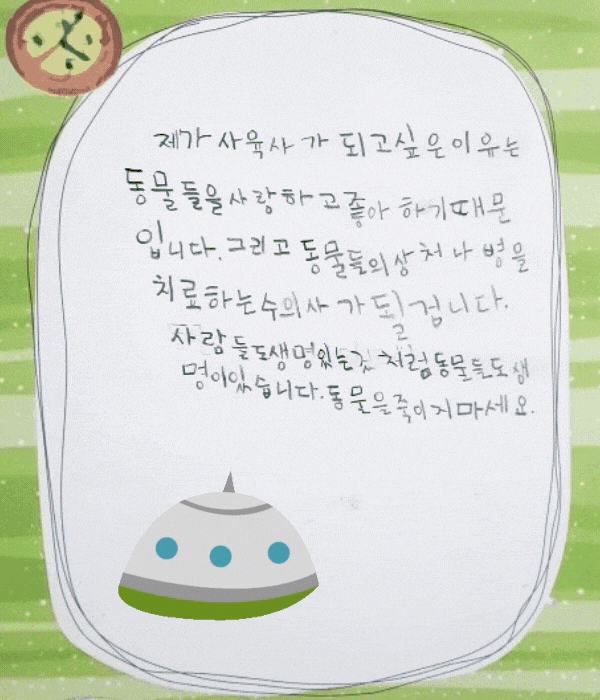 제가 사육사가 되고싶은이유는
동물들을사랑하고좋아하기때문
입니다.그리고 동물들의상처나 병을
치료하는수의사가될 겁니다.
사람들도생명있는것처럼동물들도생
명이있습니다.동물을죽이지마세요.